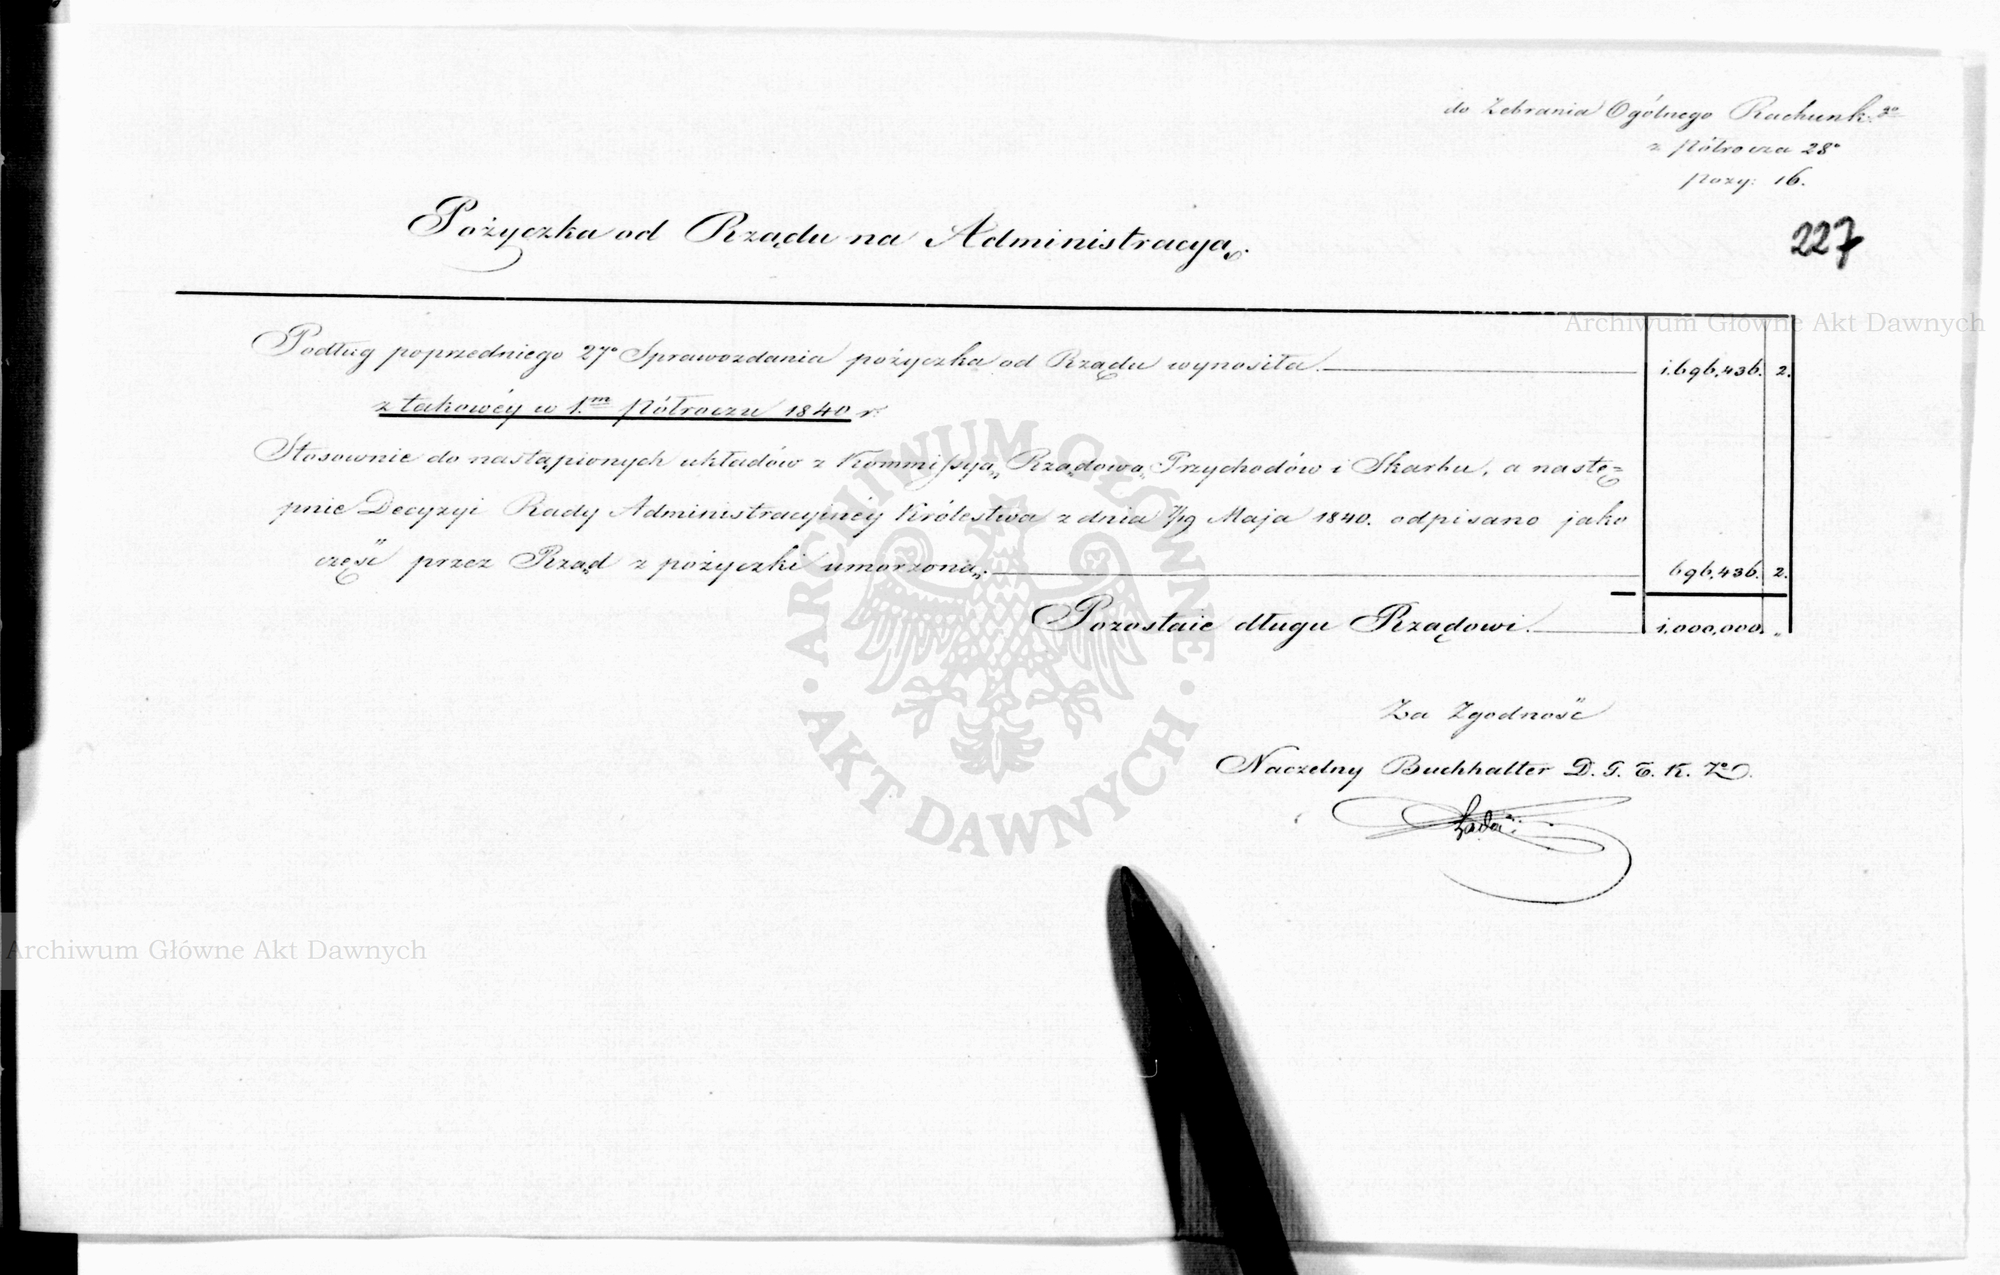 do Zebrania Ogólnego Rachunk: go
z Półrocza 28º
pozy: 16.
227
Pożyczka od Rządu na Administracyą.
Podług poprzedniego 27º Sprawozdania pożyczka od Rządu wynosiła. 1.696,436. 2.
z takowéy w 1.m Półroczu 1840 r.
Stosownie do nastąpionych układów z Kommissyą Rządową Przychodów i Skarbu, a nastę=
pnie Decyzyi Rady Administracyinéy Królestwa z dnia 7/19 Maja 1840. odpisano jako
część przez Rząd z pożyczki umorzoną. 696,436. 2.
Pozostaie długu Rządowi. 1.000,000. "
Za Zgodność
Naczelny Buchhalter D. G. T. K. Zo.
Archiwum Główne Akt Dawnych
Archiwum Główne Akt Dawnych
ARCHIWUM GŁÓWNE
· AKT DAWNYCH ·